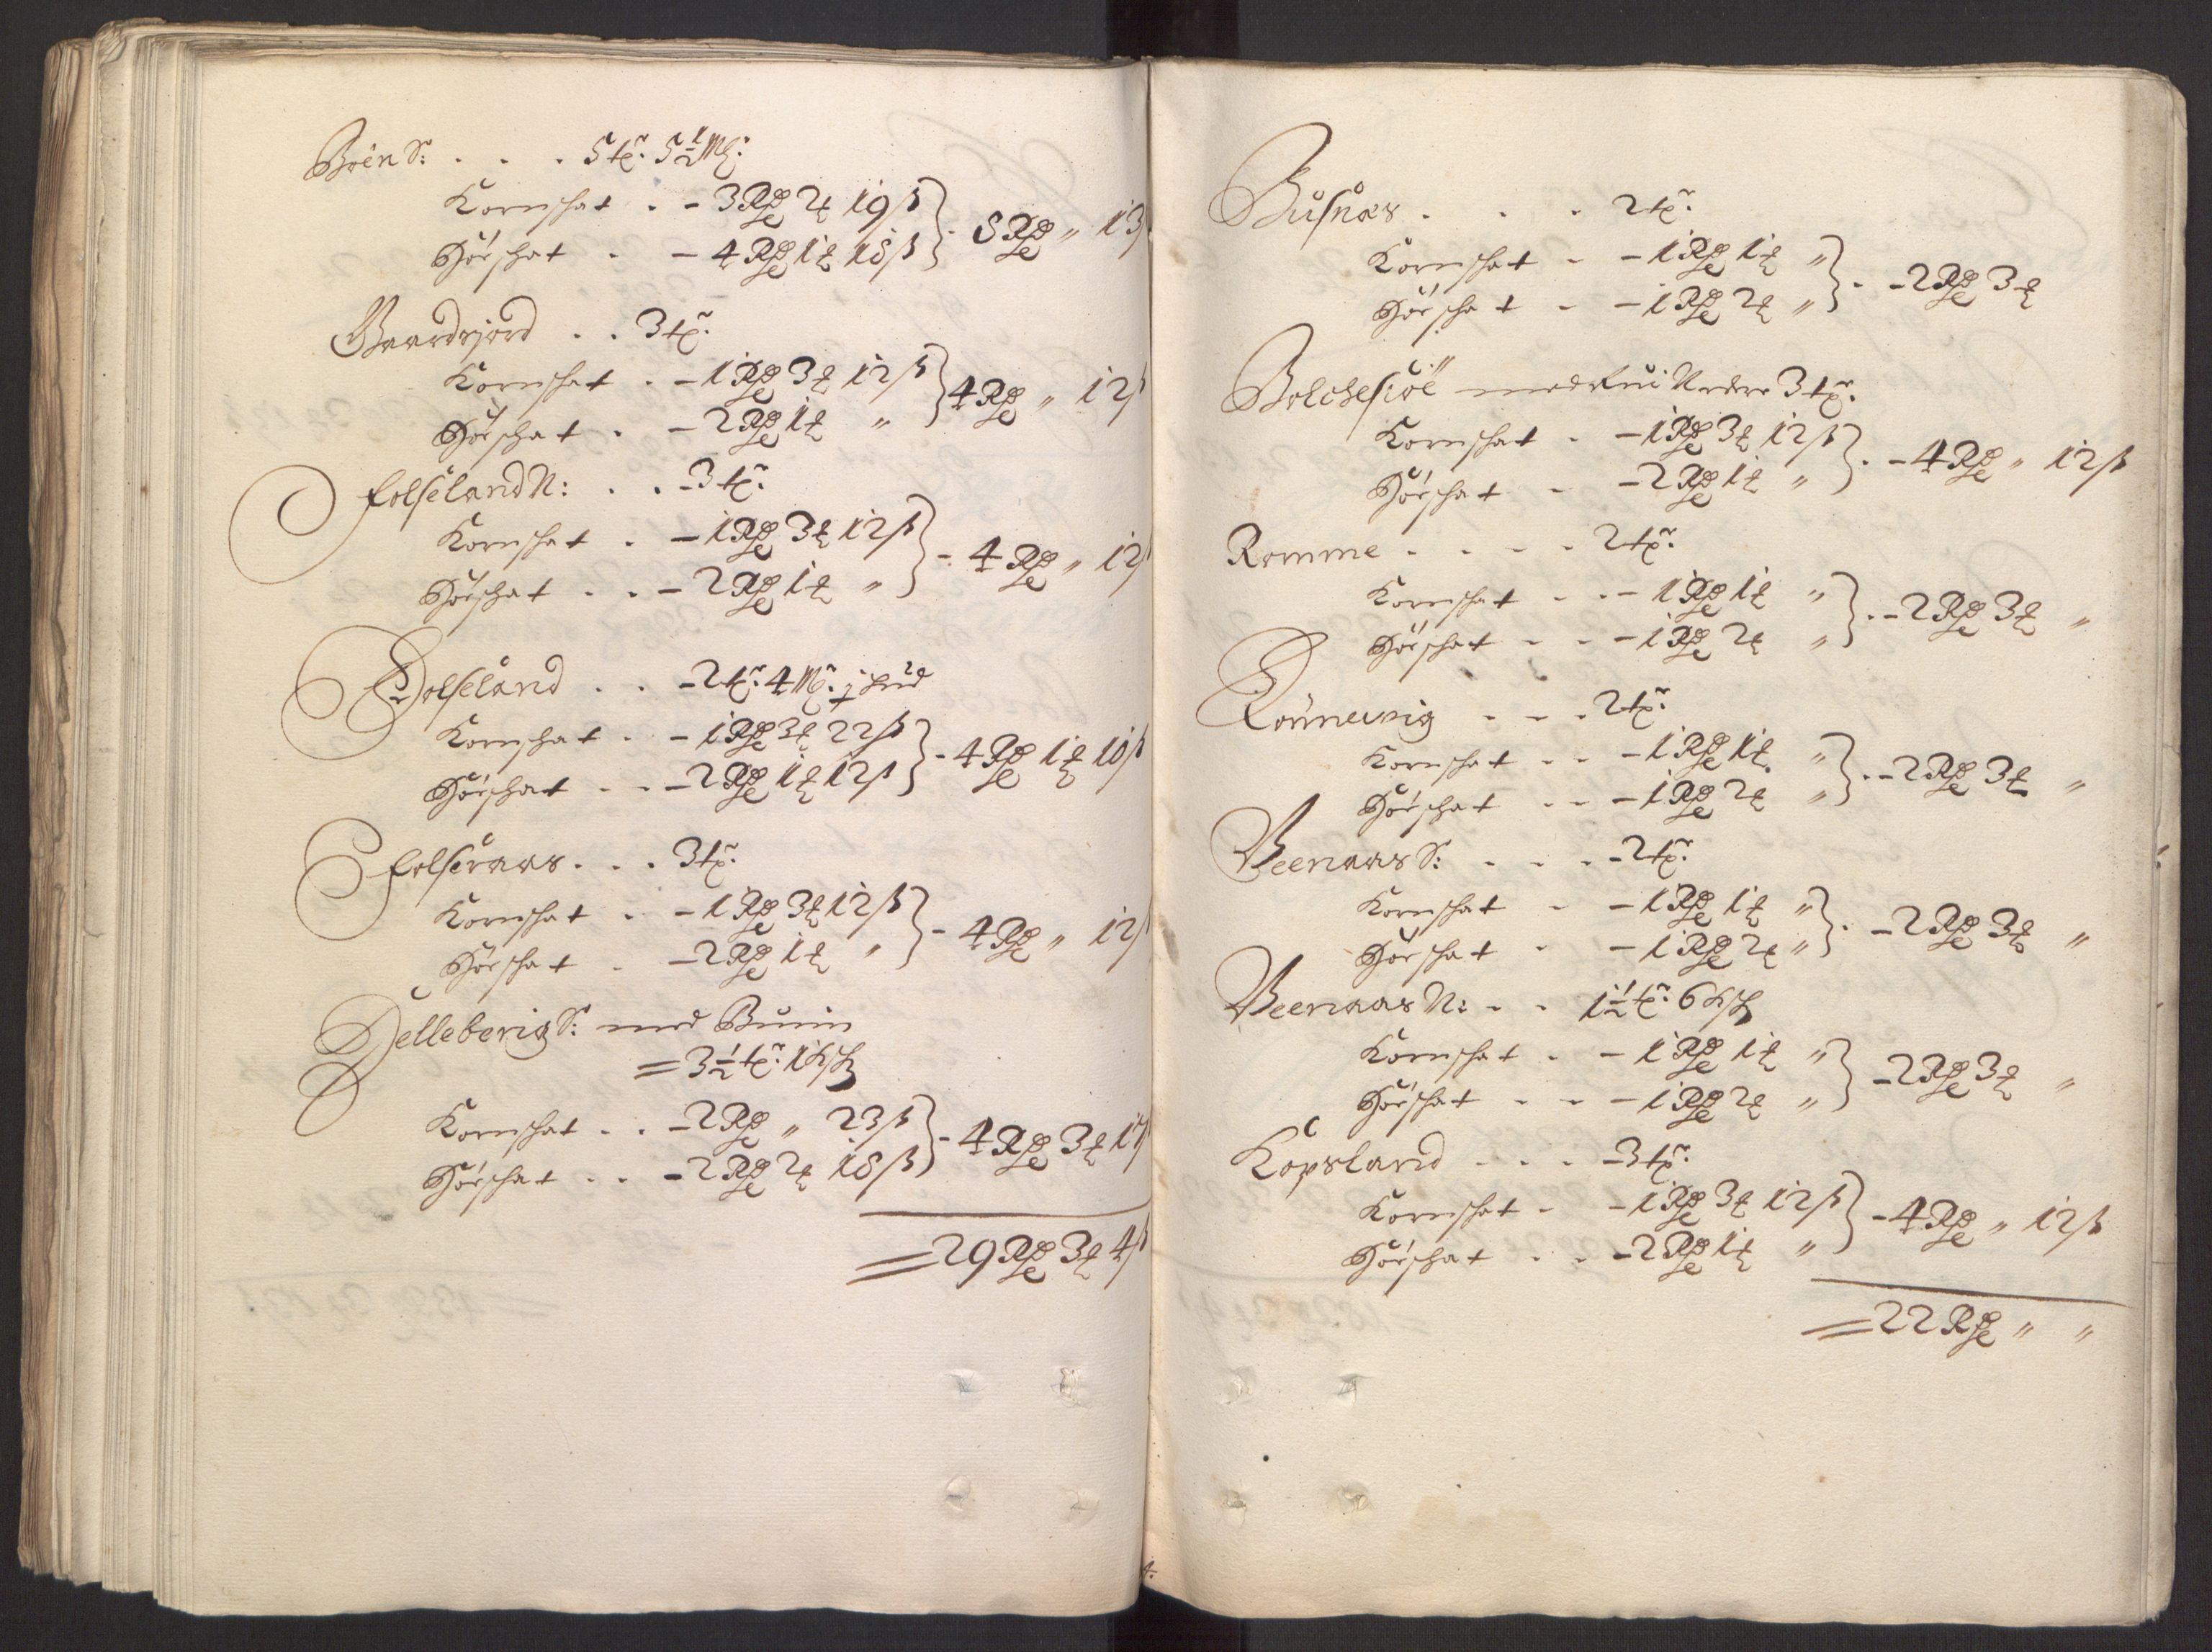 Boen S: . . . 5 tr: 5½ Ml:
Kornschat . - 3 Rd 2 t 19 ß
Hörschat . - 4 Rd 1 t 18 ß } - 8 Rd " 13 ß
Baardzjord . . 3 tr:
Kornschat . - 1 Rd 3 t 12 ß
Hörschat . - 2 Rd 1 t " } 4 Rd " 12 ß
Folseland N: . . - 3 tr:
Kornschat . - 1 Rd 3 t 12 ß
Hörschat . . - 2 Rd 1 t " } - 4 Rd " 12 ß
Holseland . . - 2 tr: 4 Ml: j hud
Kornschat . - 1 Rd 3 t 22 ß
Hörschat . . - 2 Rd 1 t 12 ß } - 4 Rd 1 t 10 ß
Folseraas . . . 3 tr:
Kornschat . - 1 Rd 3 t 12 ß
Hörschat . - 2 Rd 1 t " } - 4 Rd " 12 ß
Helleberig S: med Buuin
= 3½ tr: 1 ksk
Kornschat . . - 2 Rd " 23 ß
Hörschat . . - 2 Rd 2 t 18 ß } - 4 Rd 3 t 17 ß
= 29 Rd 3 t 4 ß
Busnæs . . . 2 tr:
Kornschat . - 1 Rd 1 t "
Hörschat . - 1 Rd 2 t " } . - 2 Rd 3 t
Bolchesiöe med Rui Nedre 3 tr:
Kornschat . - 1 Rd 3 t 12 ß
Hörschat . - 2 Rd 1 t " } . - 4 Rd " 12 ß
Romme . . . . 2 tr:
Kornschat . . - 1 Rd 1 t "
Hörschat . . - 1 Rd 2 t " } . - 2 Rd 3 t "
Rönnevig . . . 2 tr:
Kornschat . . - 1 Rd 1 t "
Hörschat . . - 1 Rd 2 t " } . - 2 Rd 3 t "
Veenaas S: . . . - 2 tr:
Kornschat . - 1 Rd 1 t "
Hörschat . - 1 Rd 2 t " } . - 2 Rd 3 t "
Veenaas N: . . 1½ tr: 6 ksk
Kornschat . - 1 Rd 1 t "
Hörschat . . - 1 Rd 2 t " } - 2 Rd 3 t "
Kopsland . . . - 3 tr:
Kornschat . - 1 Rd 3 t 12 ß
Hörschat . . - 2 Rd 1 t " } - 4 Rd " 12 ß
= 22 Rd " "